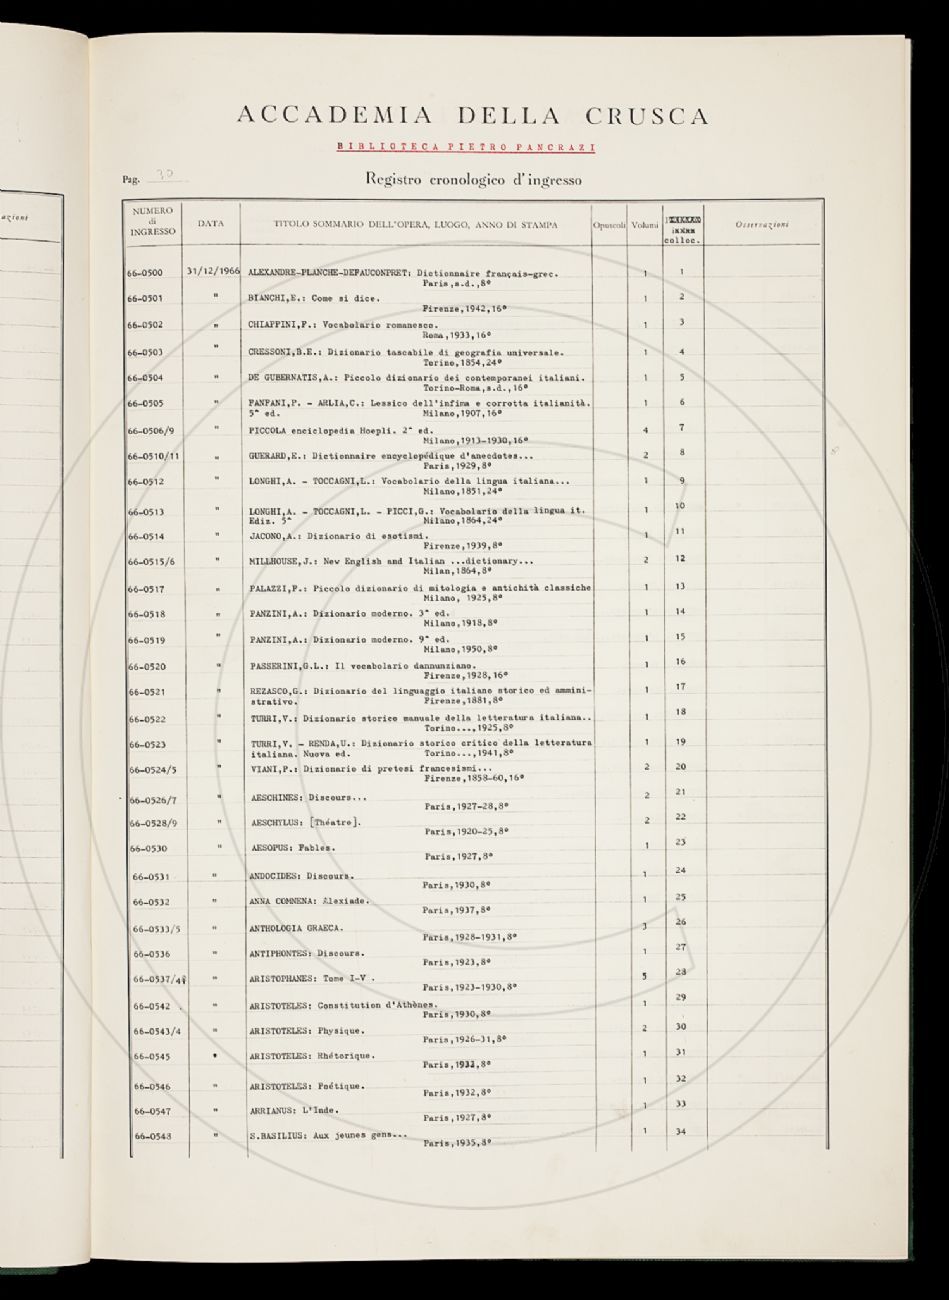 azioni
ACCADEMIA DELLA CRUSCA
BIBLIOTECA PIETRO PANCRAZI
Pag. 30
Registro cronologico d'ingresso
NUMERO di INGRESSO DATA TITOLO SOMMARIO DELL'OPERA, LUOGO, ANNO DI STAMPA Opuscoli Volumi colloc. Osservazioni
66-0500 31/12/1966 ALEXANDRE-PLANCHE-DEFAUCONPRET: Dictionnaire français-grec. 1 1
Paris,s.d.,8°
66-0501 " BIANCHI,E.: Come si dice. 1 2
Firenze,1942,16°
66-0502 " CHIAPPINI,F.: Vocabolario romanesco. 1 3
Roma,1933,16°
66-0503 " CRESSONI,B.E.: Dizionario tascabile di geografia universale. 1 4
Torino,1854,24°
66-0504 " DE GUBERNATIS,A.: Piccolo dizionario dei contemporanei italiani. 1 5
Torino-Roma,s.d.,16°
66-0505 " FANFANI,P. - ARLIA,C.: Lessico dell'infima e corrotta italianità. 1 6
5^ ed. Milano,1907,16°
66-0506/9 " PICCOLA enciclopedia Hoepli. 2^ ed. 4 7
Milano,1913-1930,16°
66-0510/11 " GUERARD,E.: Dictionnaire encyclopédique d'anecdotes... 2 8
Paris,1929,8°
66-0512 " LONGHI,A. - TOCCAGNI,L.: Vocabolario della lingua italiana... 1 9
Milano,1851,24°
66-0513 " LONGHI,A. - TOCCAGNI,L. - PICCI,G.: Vocabolario della lingua it. 1 10
Ediz. 5^ Milano,1864,24°
66-0514 " JACONO,A.: Dizionario di esotismi. 1 11
Firenze,1939,8°
66-0515/6 " MILLHOUSE,J.: New English and Italian ...dictionary... 2 12
Milan,1864,8°
66-0517 " PALAZZI,F.: Piccolo dizionario di mitologia e antichità classiche 1 13
Milano, 1925,8°
66-0518 " PANZINI,A.: Dizionario moderno. 3^ ed. 1 14
Milano,1918,8°
66-0519 " PANZINI,A.: Dizionario moderno. 9^ ed. 1 15
Milano,1950,8°
66-0520 " PASSERINI,G.L.: Il vocabolario dannunziano. 1 16
Firenze,1928,16°
66-0521 " REZASCO,G.: Dizionario del linguaggio italiano storico ed ammini- 1 17
strativo. Firenze,1881,8°
66-0522 " TURRI,V.: Dizionario storico manuale della letteratura italiana.. 1 18
Torino...,1925,8°
66-0523 " TURRI,V. - RENDA,U.: Dizionario storico critico della letteratura 1 19
italiana. Nuova ed. Torino...,1941,8°
66-0524/5 " VIANI,P.: Dizionario di pretesi francesismi... 2 20
Firenze,1858-60,16°
66-0526/7 " AESCHINES: Discours... 2 21
Paris,1927-28,8°
66-0528/9 " AESCHYLUS: [Théatre]. 2 22
Paris,1920-25,8°
66-0530 " AESOPUS: Fables. 1 23
Paris,1927,8°
66-0531 " ANDOCIDES: Discours. 1 24
Paris,1930,8°
66-0532 " ANNA COMNENA: Alexiade. 1 25
Paris,1937,8°
66-0533/5 " ANTHOLOGIA GRAECA. 3 26
Paris,1928-1931,8°
66-0536 " ANTIPHONTES: Discours. 1 27
Paris,1923,8°
66-0537/41 " ARISTOPHANES: Tome I-V . 5 28
Paris,1923-1930,8°
66-0542 . " ARISTOTELES: Constitution d'Athènes. 1 29
Paris,1930,8°
66-0543/4 " ARISTOTELES: Physique. 2 30
Paris,1926-31,8°
66-0545 " ARISTOTELES: Rhétorique. 1 31
Paris,1932,8°
66-0546 " ARISTOTELES: Poétique. 1 32
Paris,1932,8°
66-0547 " ARRIANUS: L'Inde. 1 33
Paris,1927,8°
66-0548 " S.BASILIUS: Aux jeunes gens... 1 34
Paris,1935,8°